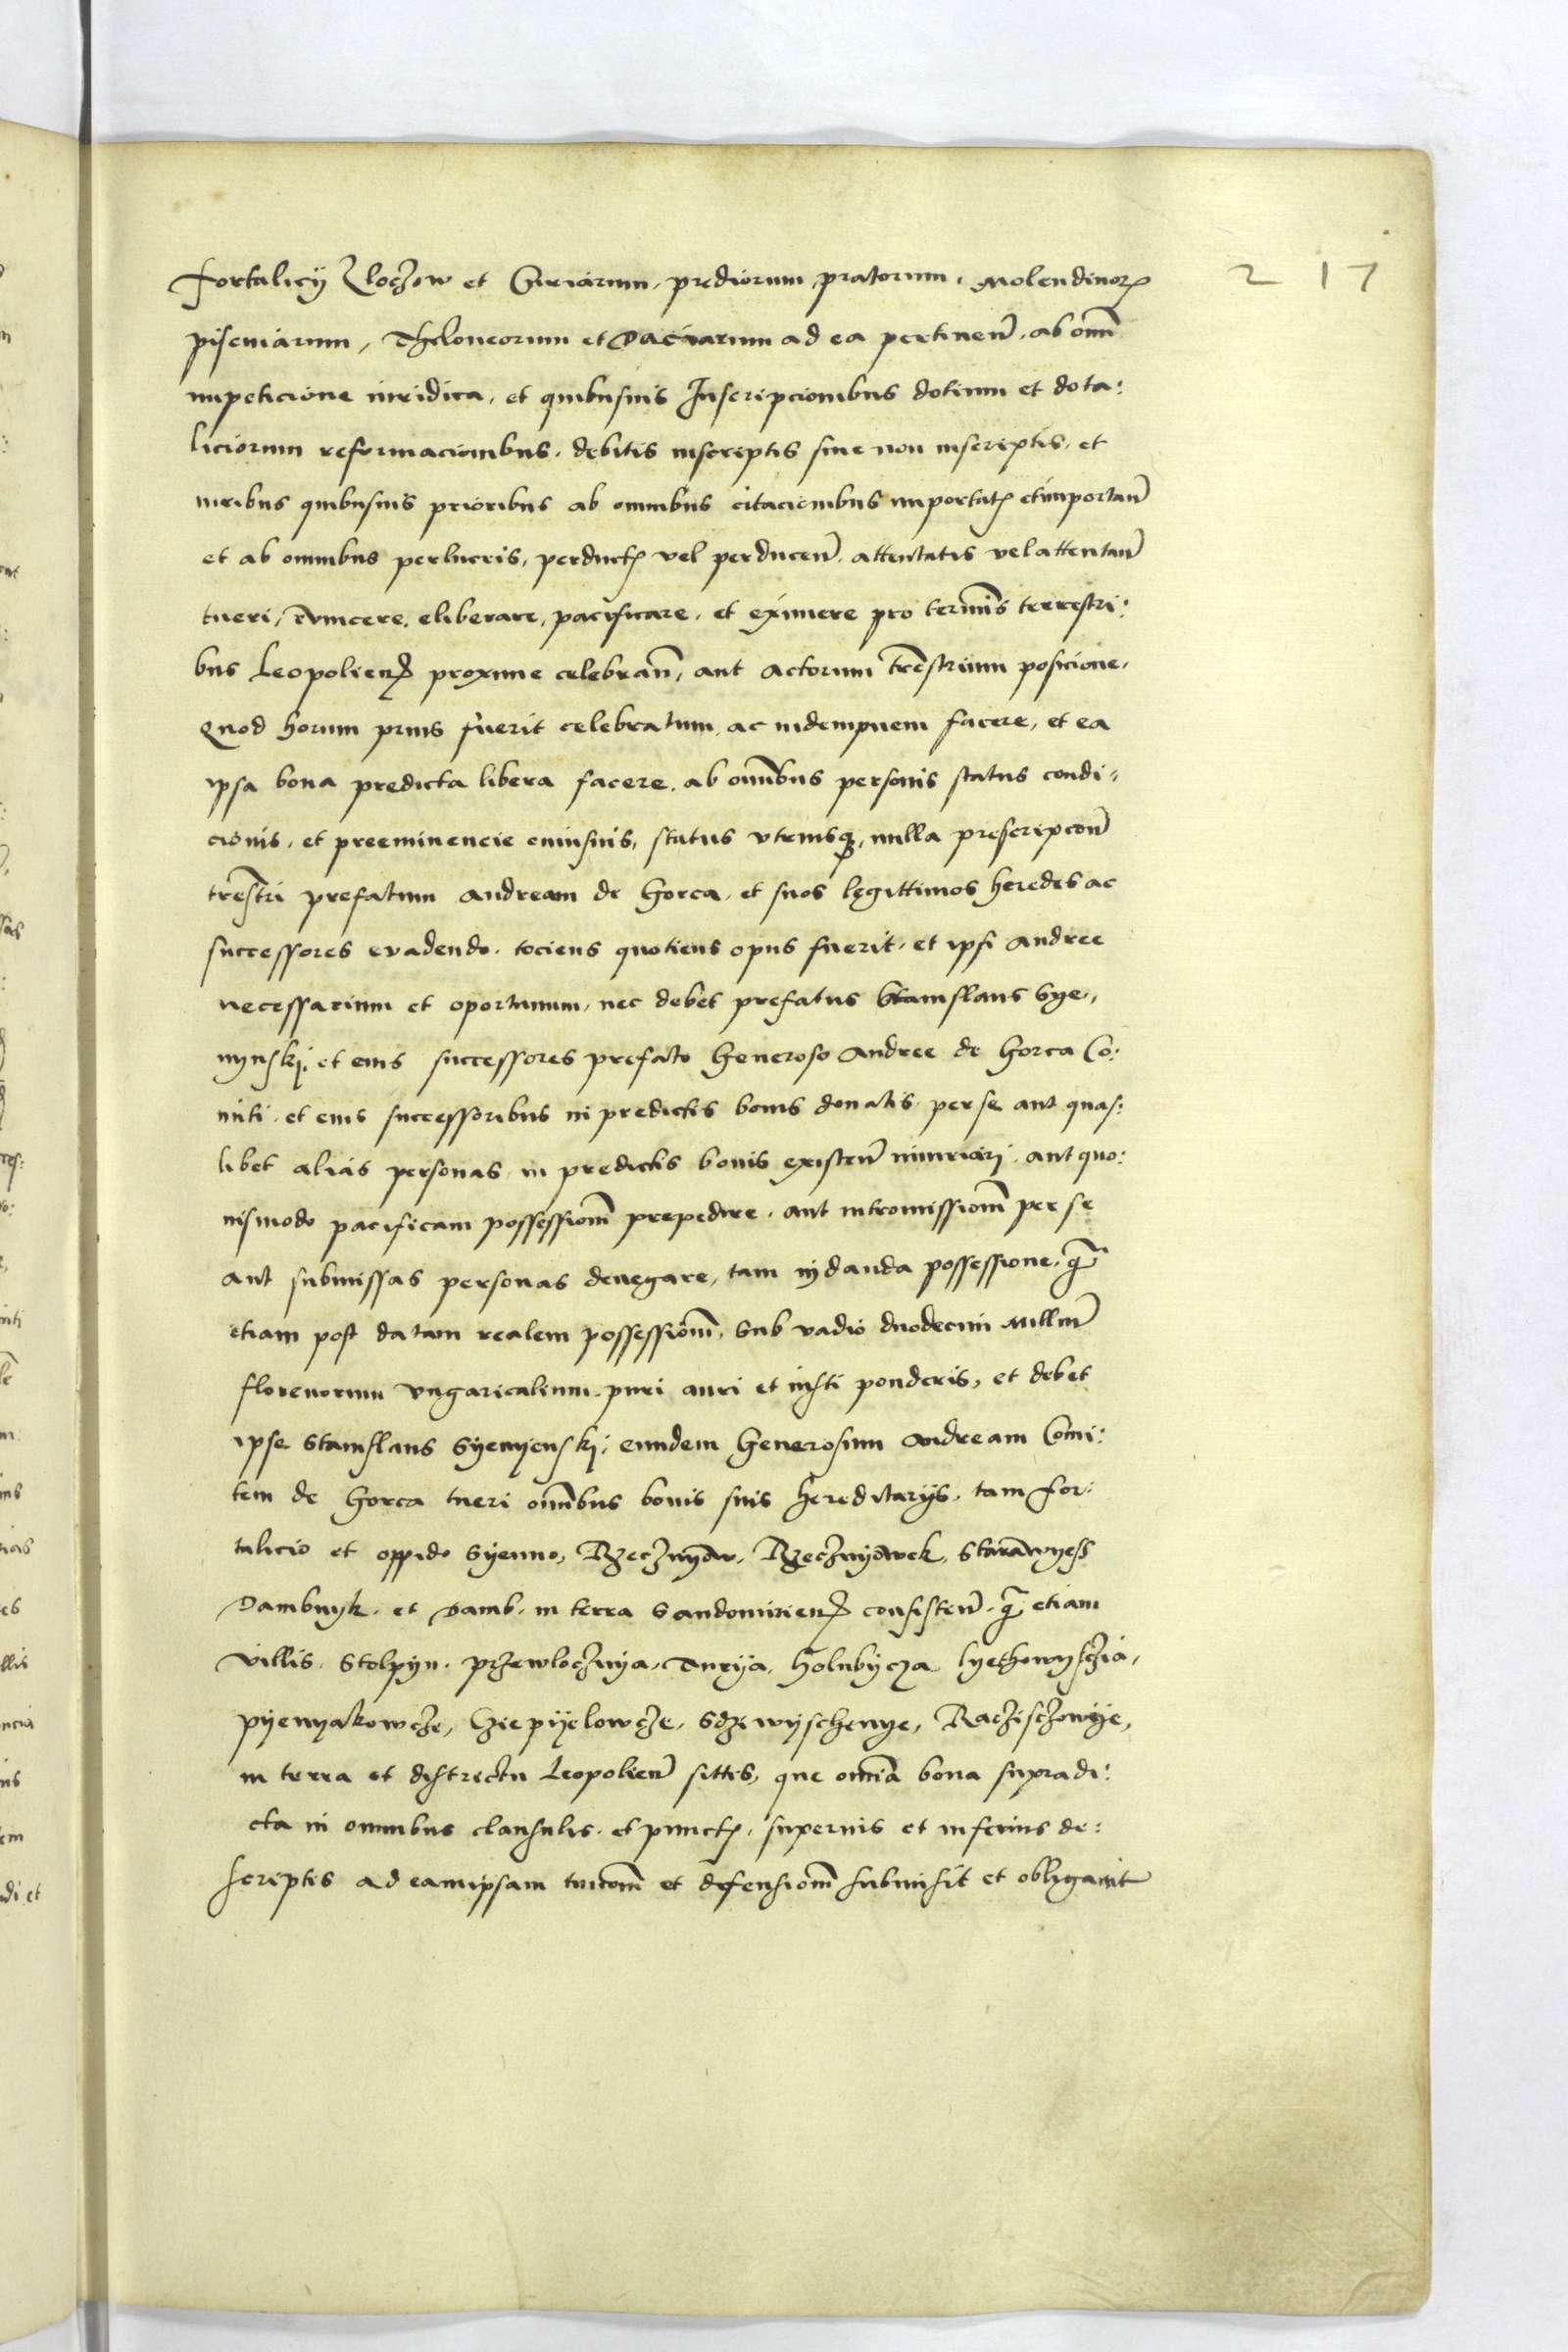 217
fortalicij Zloczow et Curiarum, prediorum, pratorum, Molendinorꝫ
pisciniarum, Theloneorum et Daciarum ad ea pertineñ, ab omī
impeticione iuridica, et quibusuis Inscripcionibus dotium et dota:
liciorum reformacionibus, debitis inscriptis siue non inscriptis, et
iuribus quibusuis prioribus ab omnibus citacionibus importatꝫ et importañ
et ab omnibus perlucris, perductꝫ vel perduceñ, attentatis vel attentañ
tueri, euincere, eliberare, pacificare, et eximere pro terminis terrestri:
bus Leopolieñ proxime celebrañ, aut actorum trēstrium posicione,
Quod horum prius fuerit celebratum, ac indempnem facere, et ea
ipsa bona predicta libera facere, ab omībus personis status condi:
cionis, et preeminencie cuiusuis, status vtriusqꝫ, nulla prescripcoñ
trēstri prefatum Andream de Gorca, et suos legittimos heredes ac
successores euadendo, tociens quotiens opus fuerit, et ipsi Andree
necessarium et oportunum, nec debet prefatus Stanislaus Sye,,
nynskj, et eius successores prefato Generoso Andree de Gorca Co:
miti, et eius successoribus in predictis bonis donatis, per se aut quas:
libet alias personas in predictis bonis existeñ iniuriarj, aut quo:
uismodo pacificam possessionē prepedire, aut intromissionē per se
aut submissas personas denegare, tam in danda possessione, q̄
etiam post datam realem possessionē, Sub vadio duodecim Milliū
florenorum Vngaricalium puri auri et iusti ponderis, et debet
ipse Stanislaus Syenyenskj, eundem Generosum Andream Comi:
tem de Gorca tueri omībus bonis suis hereditarijs, tam for:
talicio et oppido Syenno, Rzecznyow, Rzecznyowek, Starawyess
Dambnyk, et Damb, in terra Sandomirieñ consisteñ, q̄ etiam
villis, Stolpyn, Przewlocznya, Turya, Holubycza lyechowyschia,
Pyenyakowcze, Cziepyelowcze, Sdzwyschenye, Raczisczowye,
in terra et districtu Leopolieñ sittis, que omīa bona supradi:
cta in omnibus clausulis, et punctꝫ, superius et inferius de:
scriptis ad eamipsam tuicionē et defensionē submisit et obligauit